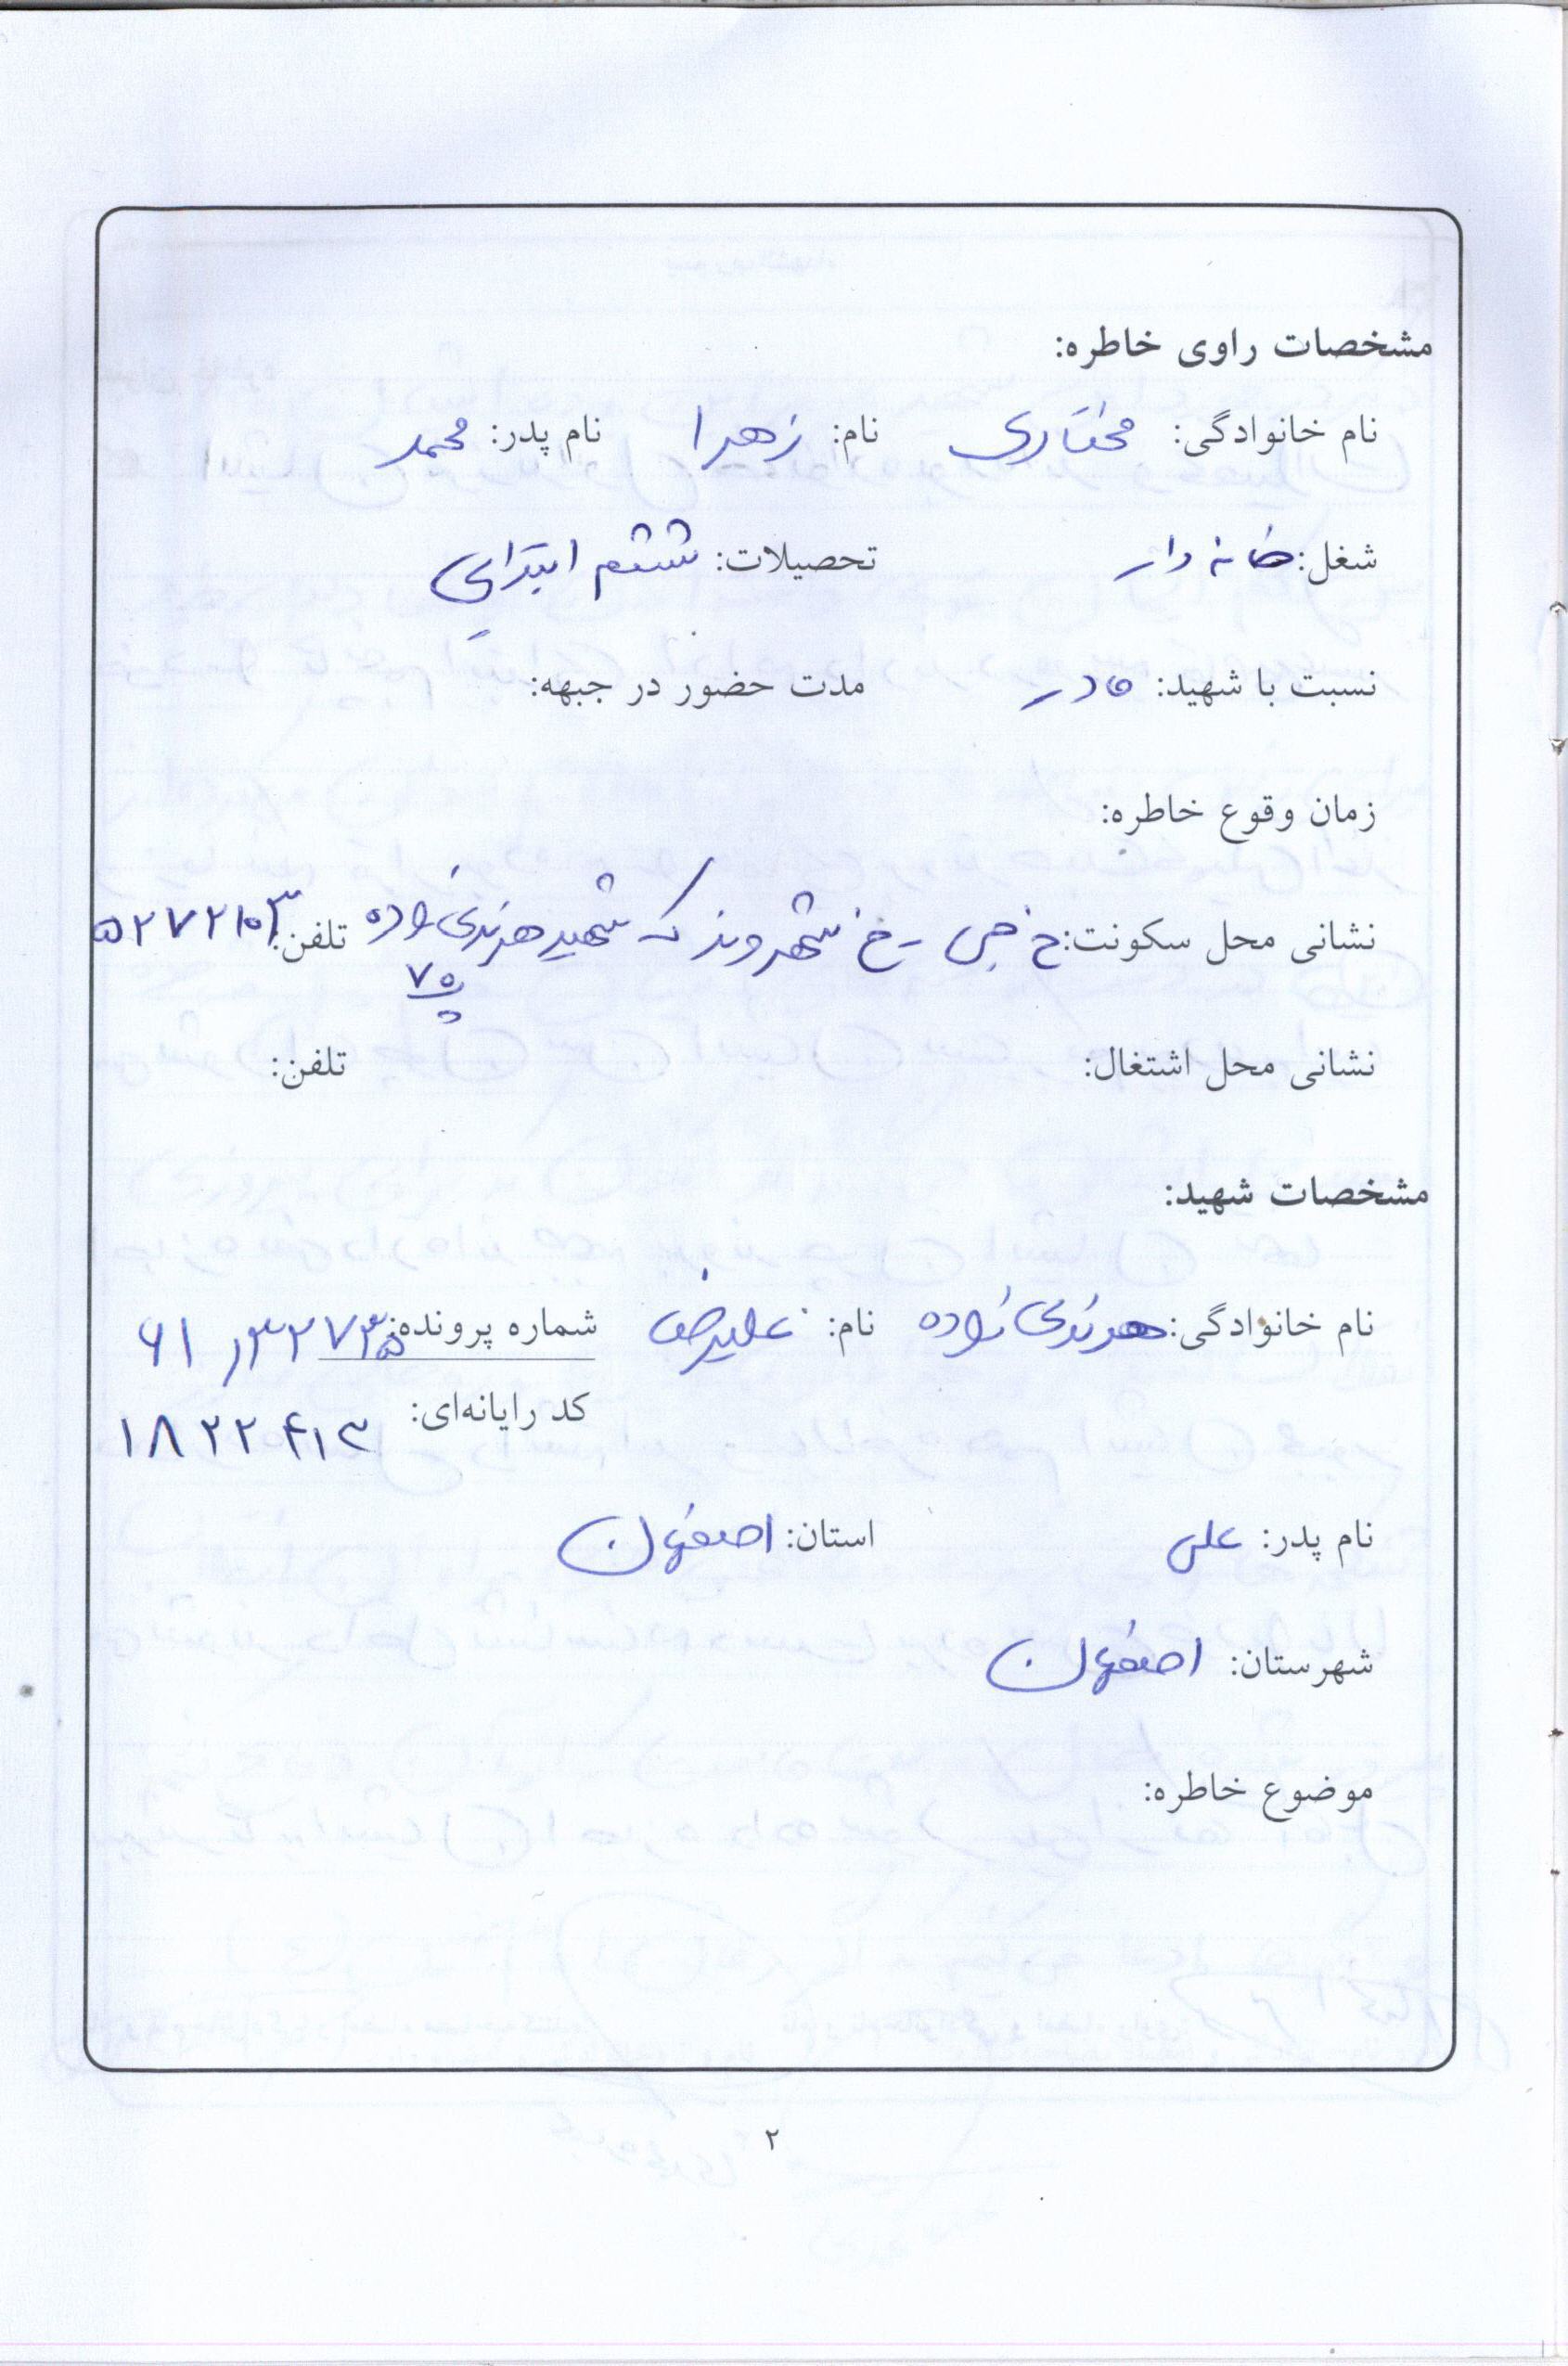 مشخصات راوی خاطره:
نام خانوادگی: مختاری نام: زهرا نام پدر: محمد
شغل: خانه دار تحصیلات: ششم ابتدایی
نسبت با شهید: مادر مدت حضور در جبهه:
زمان وقوع خاطره:
نشانی محل سکونت: خ جی - خ شهروند ک شهید هرندی زاده تلفن: ۵۲۷۲۱۰۳
پ ۷۵
نشانی محل اشتغال: تلفن:
مشخصات شهید:
نام خانوادگی: هرندی زاده نام: علیرضا شماره پرونده:
کد رایانه‌ای: ۱۸۲۲۴۱۳
نام پدر: علی استان: اصفهان
شهرستان: اصفهان
موضوع خاطره:
۲